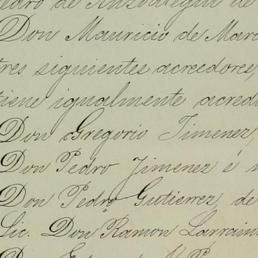 Pedro de Anzoategui de
Don Mauricio de Mar
tres siguientes acreedores,
tiene igualmente acred
Don Gregorio Timenez,
Don Pedro Jimenez é
Don Pedro Gutierrez, de
Lic. Don Ramon Larrain
Don